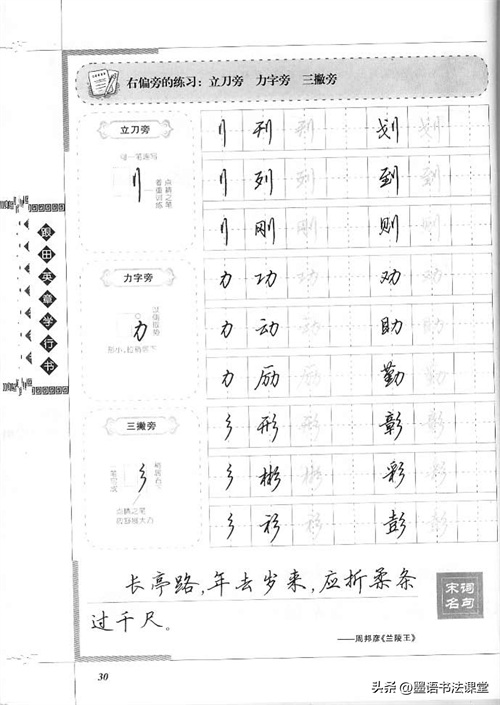 右偏旁的练习：立刀旁 力字旁 三撇旁
立刀旁
刂 刊 刊 划 划
刂 列 列 到 到
刂 刚 刚 则 则
力字旁
力 功 功 劝 劝
力 动 动 助 助
力 励 励 勤 勤
三撇旁
彡 形 形 彰 彰
彡 彬 彬 彩 彩
彡 衫 衫 彭 彭
点睛之笔
跟田英章学行书
长亭路，年去岁来，应折柔条
过千尺。
宋词
名句
——周邦彦《兰陵王》
30
头条@墨语书法课堂